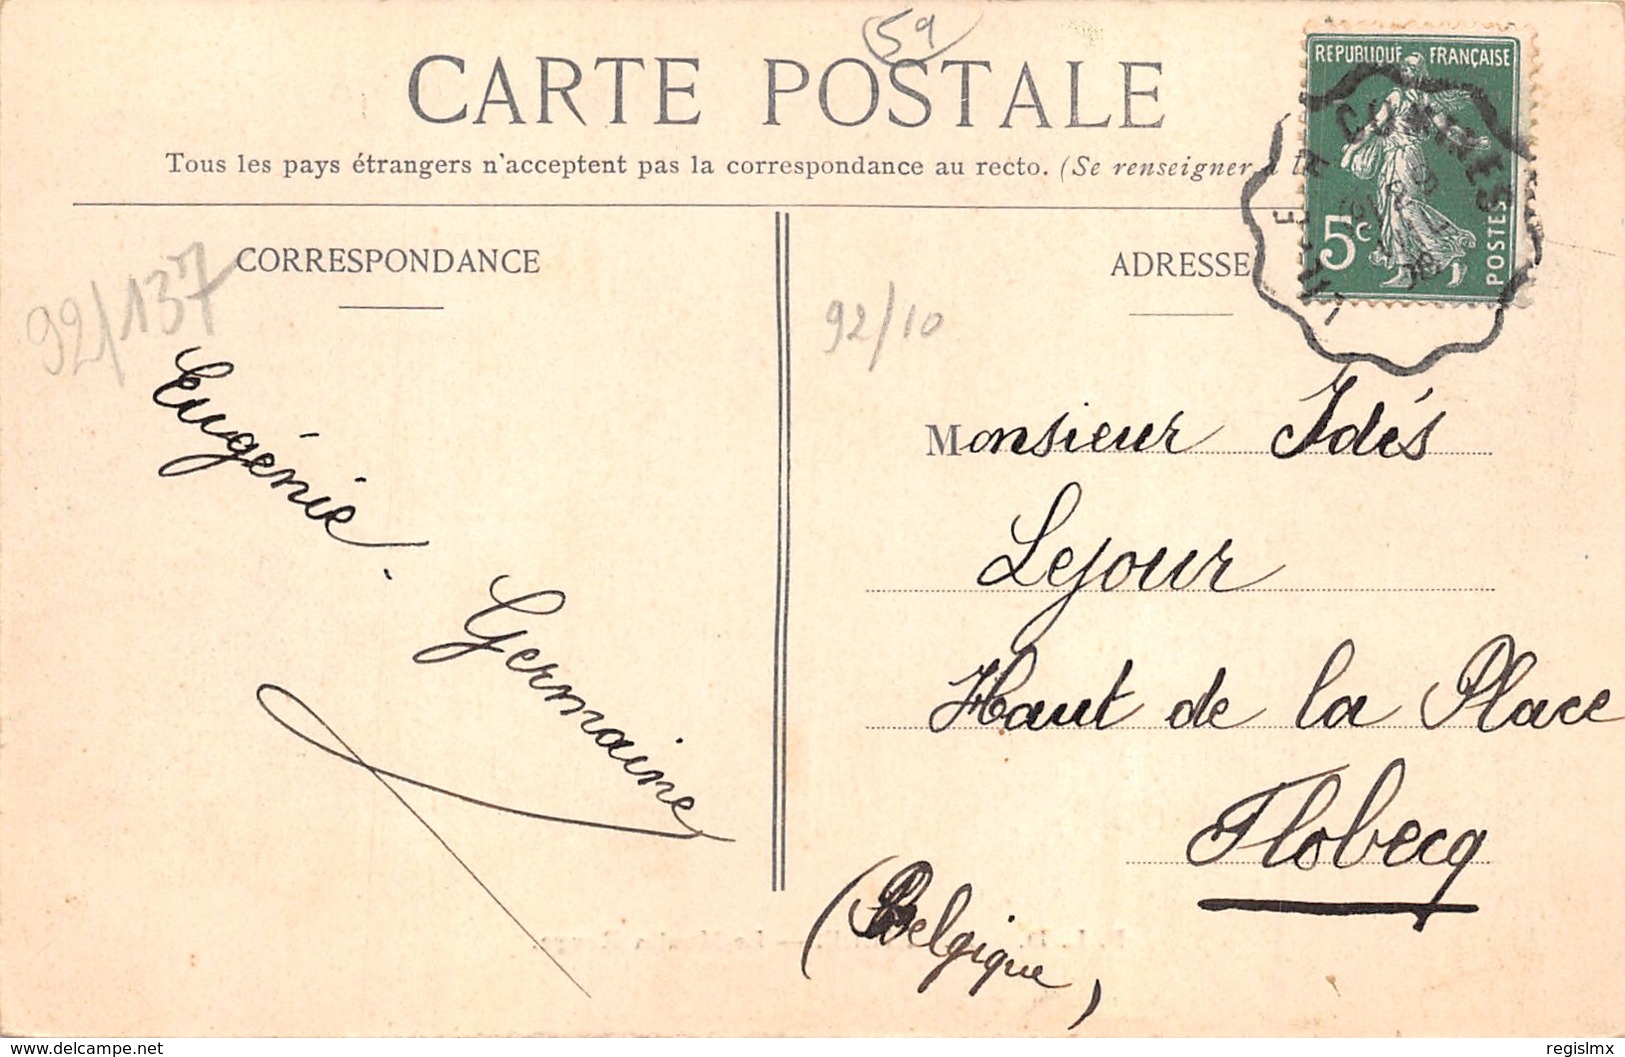 59
CARTE POSTALE
Tous les pays étrangers n'acceptent pas la correspondance au recto. (Se renseigner à la
REPUBLIQUE FRANÇAISE
5c
POSTES
CORRESPONDANCE
ADRESSE
92/137
92/10
Eugénie.
Germaine
Monsieur Idés
Lejour
Haut de la Place
Flobecq
(Belgique)
www.delcampe.net
regislmx